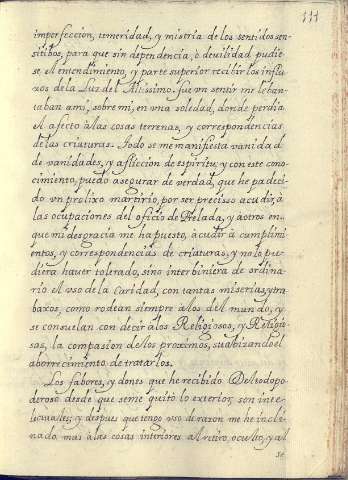 111
imperfeccion, temeridad, y miseria de los sentidos sen-
sitibos, para que sin dependencia, ò devilidad pudie-
se el entendimiento, y parte superior recibir los influ-
xos de la Luz del Altissimo. fue un sentir me leban-
taban ami, sobre mi, en una soledad, donde perdia
el afecto à las cosas terrenas, y correspondencias
de las criaturas. Todo se me manifesta vanidad
de vanidades, y afliccion de espiritu; y con este cono-
cimiento, puedo asegurar de verdad, que he padeci-
do un prolixo martirio, por ser precisso acudir, à
las ocupaciones del oficio de Prelada, y à otros en
que mi desgracia me ha puesto, à cudir à cumplimi-
entos, y correspondencias de criaturas, y no lo pu-
diera haver tolerado, sino interbiniera de ordina-
rio el uso de la Caridad, con tantas miserias, y tra-
baxos, como rodean siempre à los del mundo, y
se consuelan con decir à los Religiosos, y Religio-
sas, la compasion de los proximos, suabizando el
aborrecimiento de tratarlos.
Los fabores, y dones que he recibido del todopo-
deroso desde que seme quitò lo exterior, son inte-
lectuales; y despues que tengo uso de razon me he incli-
nado mas à las cosas interiores al retiro, oculto, y al
se